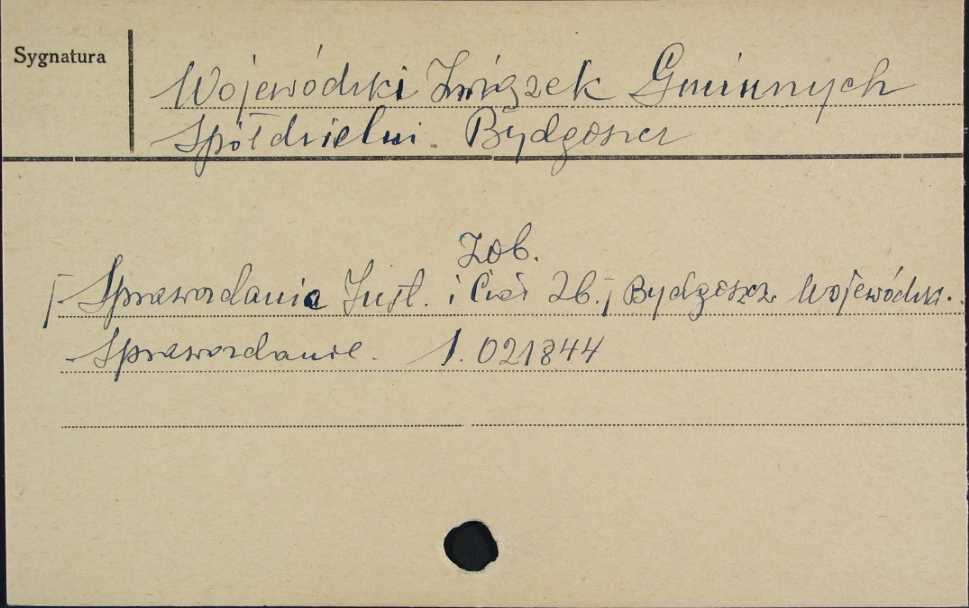 Sygnatura
Wojewódzki Związek Gminnych
Spółdzielni. Bydgoszcz
Zob.
[Sprawozdania Inst. i Ciał Zb.] Bydgoszcz Wojewódz.
Sprawozdanie. 1. 021844